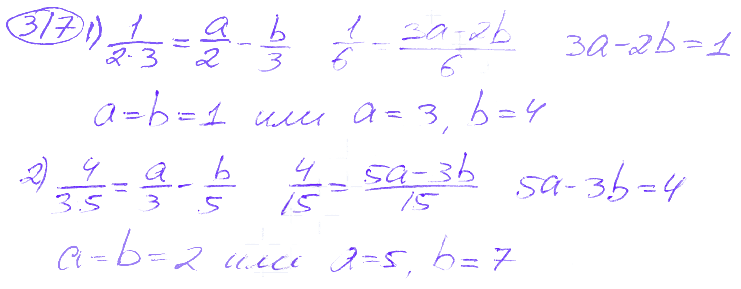 317 1) 1/(2·3) = a/2 - b/3   1/6 - (3a-2b)/6   3a-2b=1
a=b=1 или a=3, b=4
2) 4/(3·5) = a/3 - b/5   4/15 = (5a-3b)/15   5a-3b=4
a=b=2 или 2=5, b=7